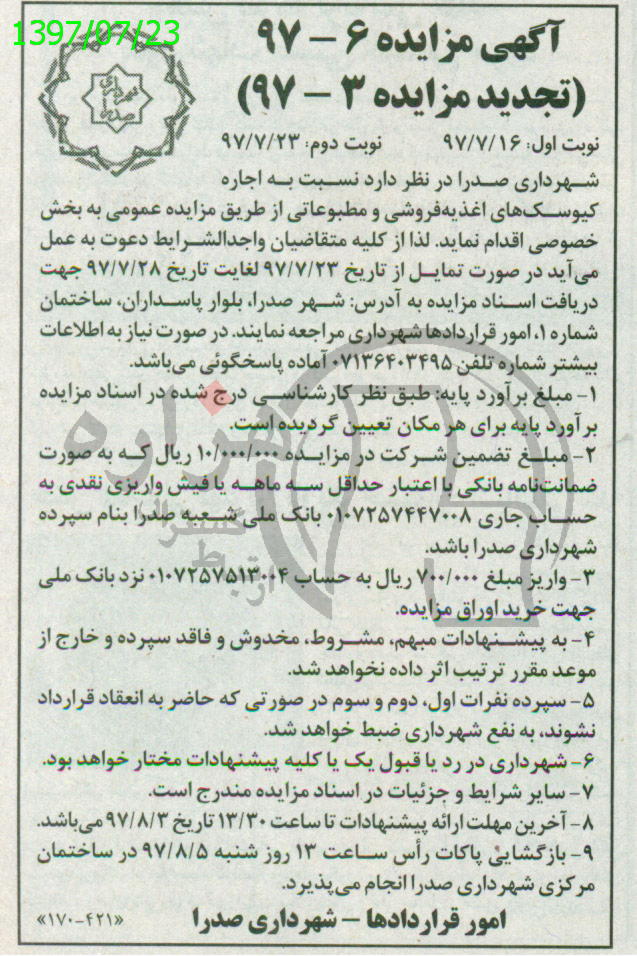 1397/07/23
آگهی مزایده ۶ – ۹۷
(تجدید مزایده ۳ – ۹۷)
شهرداری
صدرا
نوبت اول: ۹۷/۷/۱۶ نوبت دوم: ۹۷/۷/۲۳
شهرداری صدرا در نظر دارد نسبت به اجاره
کیوسک‌های اغذیه‌فروشی و مطبوعاتی از طریق مزایده عمومی به بخش
خصوصی اقدام نماید. لذا از کلیه متقاضیان واجدالشرایط دعوت به عمل
می‌آید در صورت تمایل از تاریخ ۹۷/۷/۲۳ لغایت تاریخ ۹۷/۷/۲۸ جهت
دریافت اسناد مزایده به آدرس: شهر صدرا، بلوار پاسداران، ساختمان
شماره ۱، امور قراردادها شهرداری مراجعه نمایند. در صورت نیاز به اطلاعات
بیشتر شماره تلفن ۰۷۱۳۶۴۰۳۴۹۵ آماده پاسخگوئی می‌باشد.
۱- مبلغ برآورد پایه: طبق نظر کارشناسی درج شده در اسناد مزایده
برآورد پایه برای هر مکان تعیین گردیده است.
۲- مبلغ تضمین شرکت در مزایده ۱۰/۰۰۰/۰۰۰ ریال که به صورت
ضمانت‌نامه بانکی با اعتبار حداقل سه ماهه یا فیش واریزی نقدی به
حساب جاری ۰۱۰۷۲۵۷۴۴۷۰۰۸ بانک ملی شعبه صدرا بنام سپرده
شهرداری صدرا باشد.
۳- واریز مبلغ ۷۰۰/۰۰۰ ریال به حساب ۰۱۰۷۲۵۷۵۱۳۰۰۴ نزد بانک ملی
جهت خرید اوراق مزایده.
۴- به پیشنهادات مبهم، مشروط، مخدوش و فاقد سپرده و خارج از
موعد مقرر ترتیب اثر داده نخواهد شد.
۵- سپرده نفرات اول، دوم و سوم در صورتی که حاضر به انعقاد قرارداد
نشوند، به نفع شهرداری ضبط خواهد شد.
۶- شهرداری در رد یا قبول یک یا کلیه پیشنهادات مختار خواهد بود.
۷- سایر شرایط و جزئیات در اسناد مزایده مندرج است.
۸- آخرین مهلت ارائه پیشنهادات تا ساعت ۱۳/۳۰ تاریخ ۹۷/۸/۳ می‌باشد.
۹- بازگشایی پاکات رأس ساعت ۱۳ روز شنبه ۹۷/۸/۵ در ساختمان
مرکزی شهرداری صدرا انجام می‌پذیرد.
امور قراردادها – شهرداری صدرا
«۱۷۰-۴۲۱»
هزاره